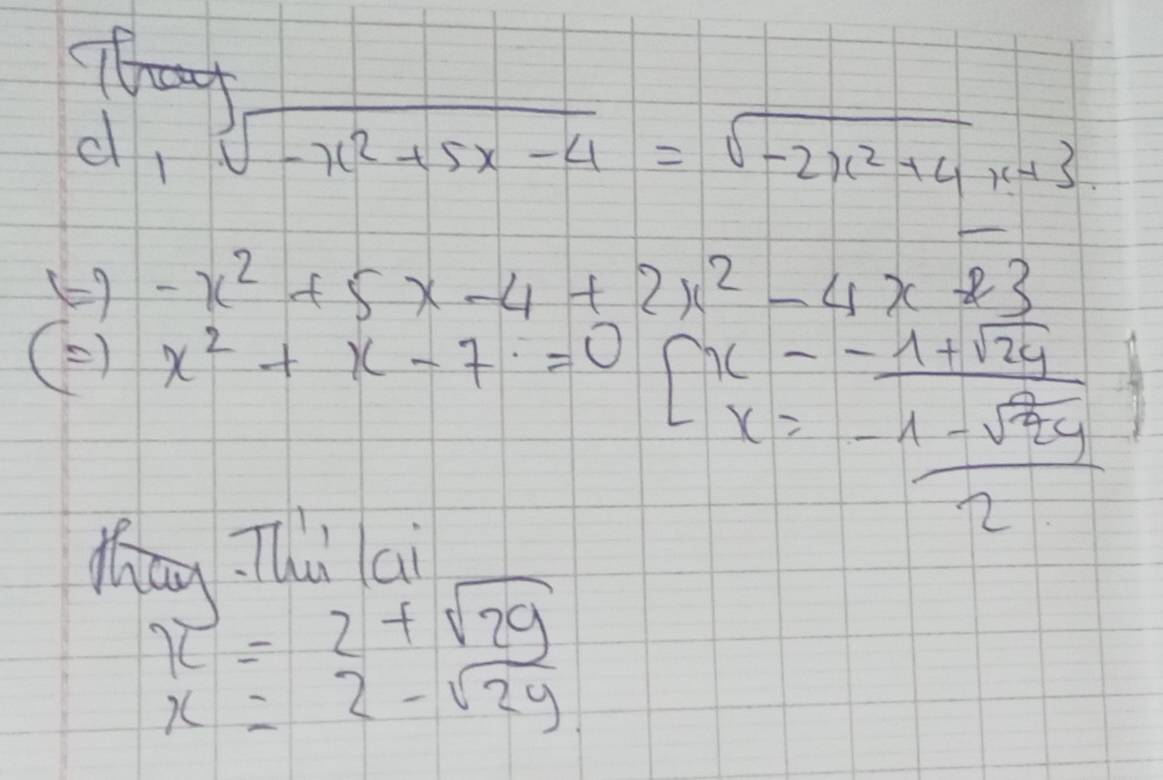 Thay
d, √-x² + 5x - 4 = √-2x² + 4x + 3.
(=) -x² + 5x - 4 + 2x² - 4x - 3
(=) x² + x - 7 = 0 [ x = -1 + √29
x = -1 - √29 / 2
Thay Thử lại
x = 2 + √29
x = 2 - √29